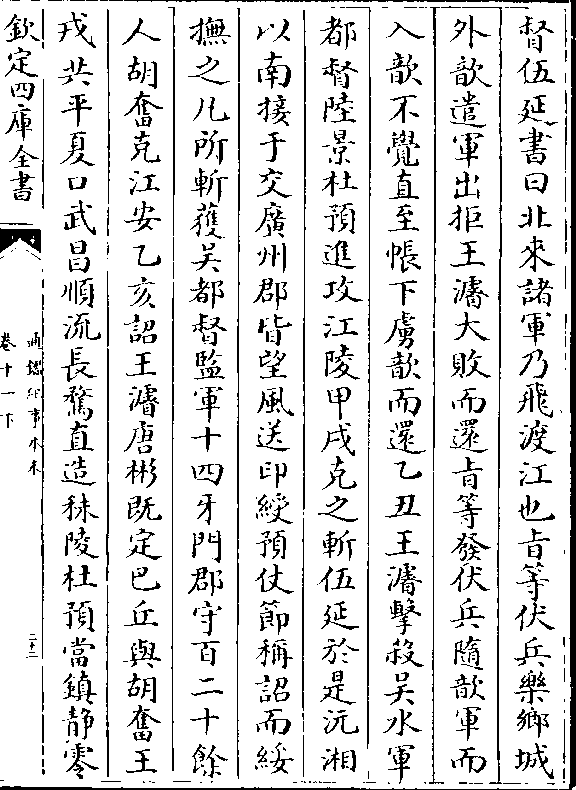 督伍延書曰北來諸軍乃飛渡江也㫖等伏兵樂鄉城
外歆遣軍出拒王濬大敗而還㫖等發伏兵隨歆軍而
入歆不覺直至帳下虜歆而還乙丑王濬擊殺吳水軍
都督陸景杜預進攻江陵甲戌克之斬伍延於是沅湘
以南接于交廣州郡皆望風送印綬預仗節稱詔而綏
撫之凡所斬獲吳都督監軍十四牙門郡守百二十餘
人胡奮克江安乙亥詔王濬唐彬既定巴丘與胡奮王
戎共平夏口武昌順流長騖直造秣陵杜預當鎮静零
欽定四庫全書
通鑑紀事本末
卷十一下
二十二